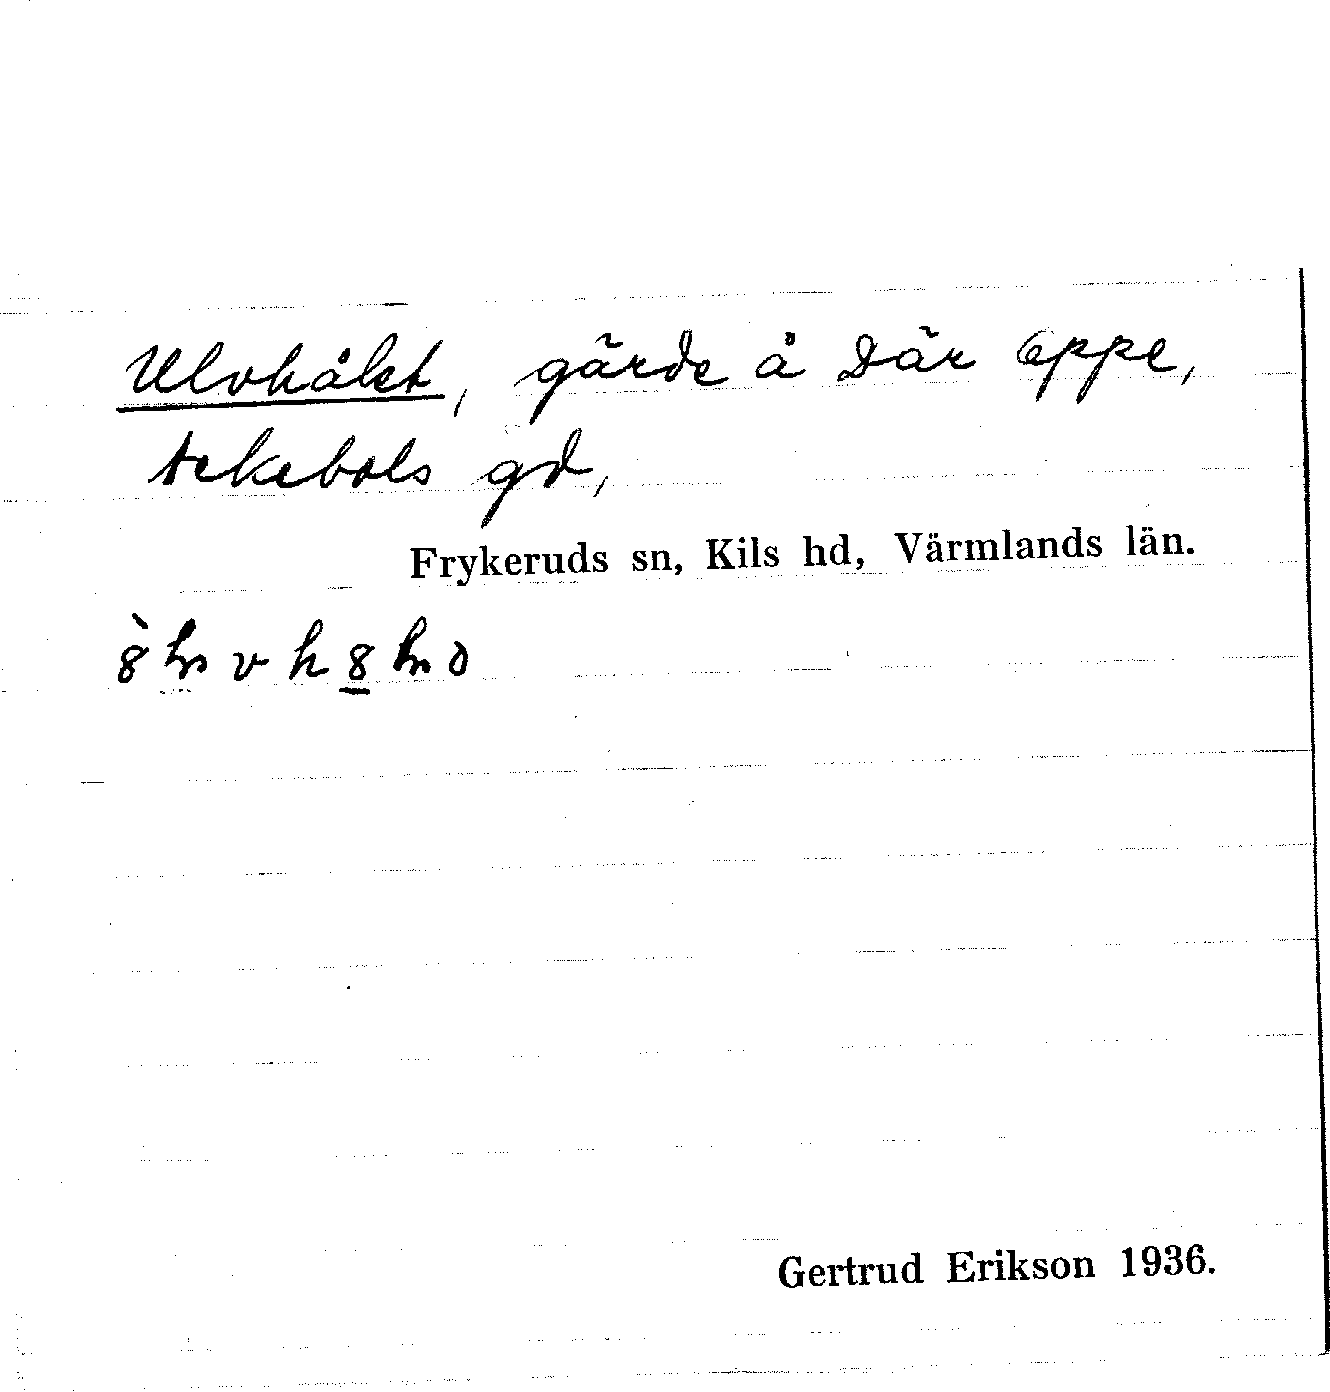 Ulvhålet, gärde å Där oppe,
Nekebols gd,
Frykeruds sn, Kils hd, Värmlands län.
Gertrud Erikson 1936.